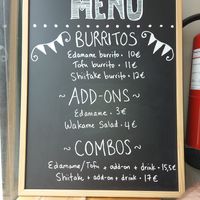 MENU
BURRITOS
Edamame burrito • 10€
Tofu burrito • 11€
Shiitake burrito • 12€
~ADD-ONS~
Edamame • 3€
Wakame Salad • 4€
~COMBOS~
Edamame/Tofu + add-on + drink • 15,5€
Shiitake + add-on + drink • 17€